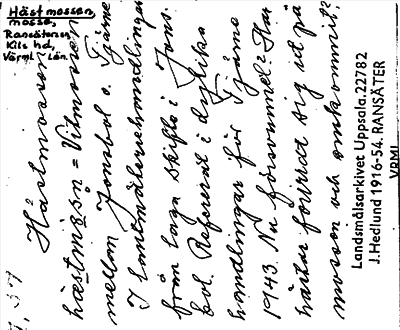 Hästmossen,
mosse,
Ransäter sn,
Kils hd,
Värml. län.
Hästmossen
hæstmåsən = Vitmossen
mellan Jonsbol o. Tjärne
I lantmäterihandlingar
från laga skifte i Jons-
bol. Refererat i dylika
handlingar för Tjärne
1943. Nu försvunnet? Har
hästar förirrat sig ut på
mossen och omkommit?
Landsmålsarkivet Uppsala. 22782
J. Hedlund 1916-54. RANSÄTER
VRML